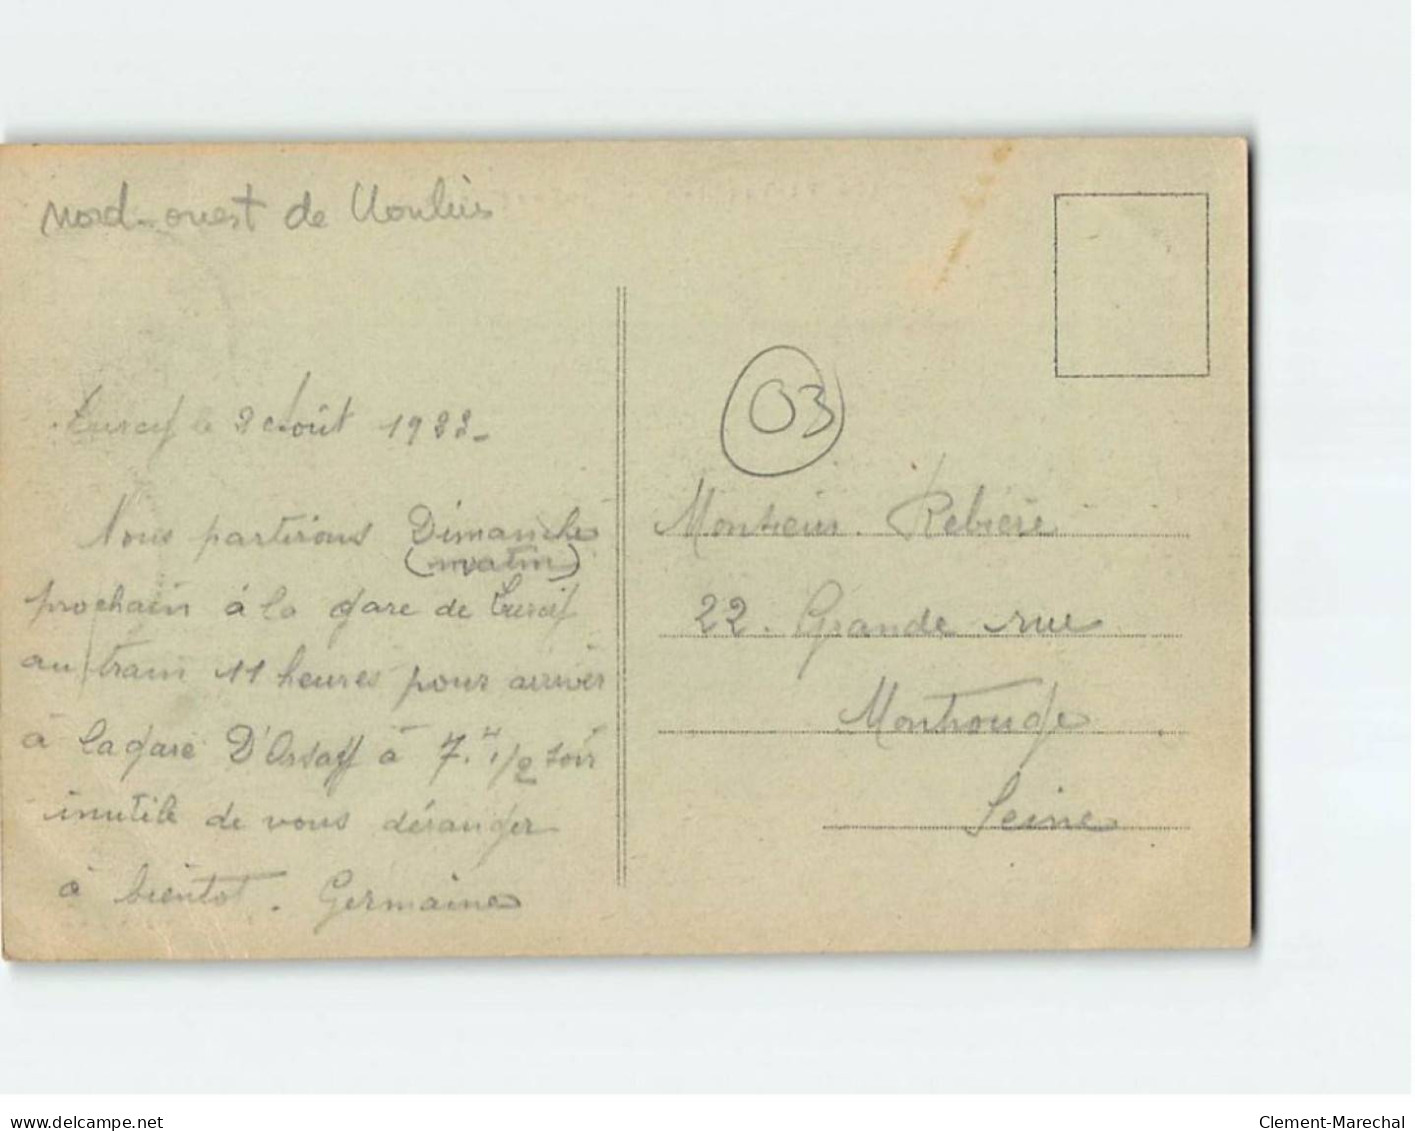 Nord-ouest de Moulins
Murat le 2 Août 1922-
Nous partirons Dimanche
(matin)
prochain à la gare de
au train 11 heures pour arriver
à la gare D'Orsay à 7.H 1/2 soir
inutile de vous déranger
à bientot. Germaine
03
Monsieur. Rebiere
22. Grande rue
Montrouge
Seine
www.delcampe.net
Clement-Marechal